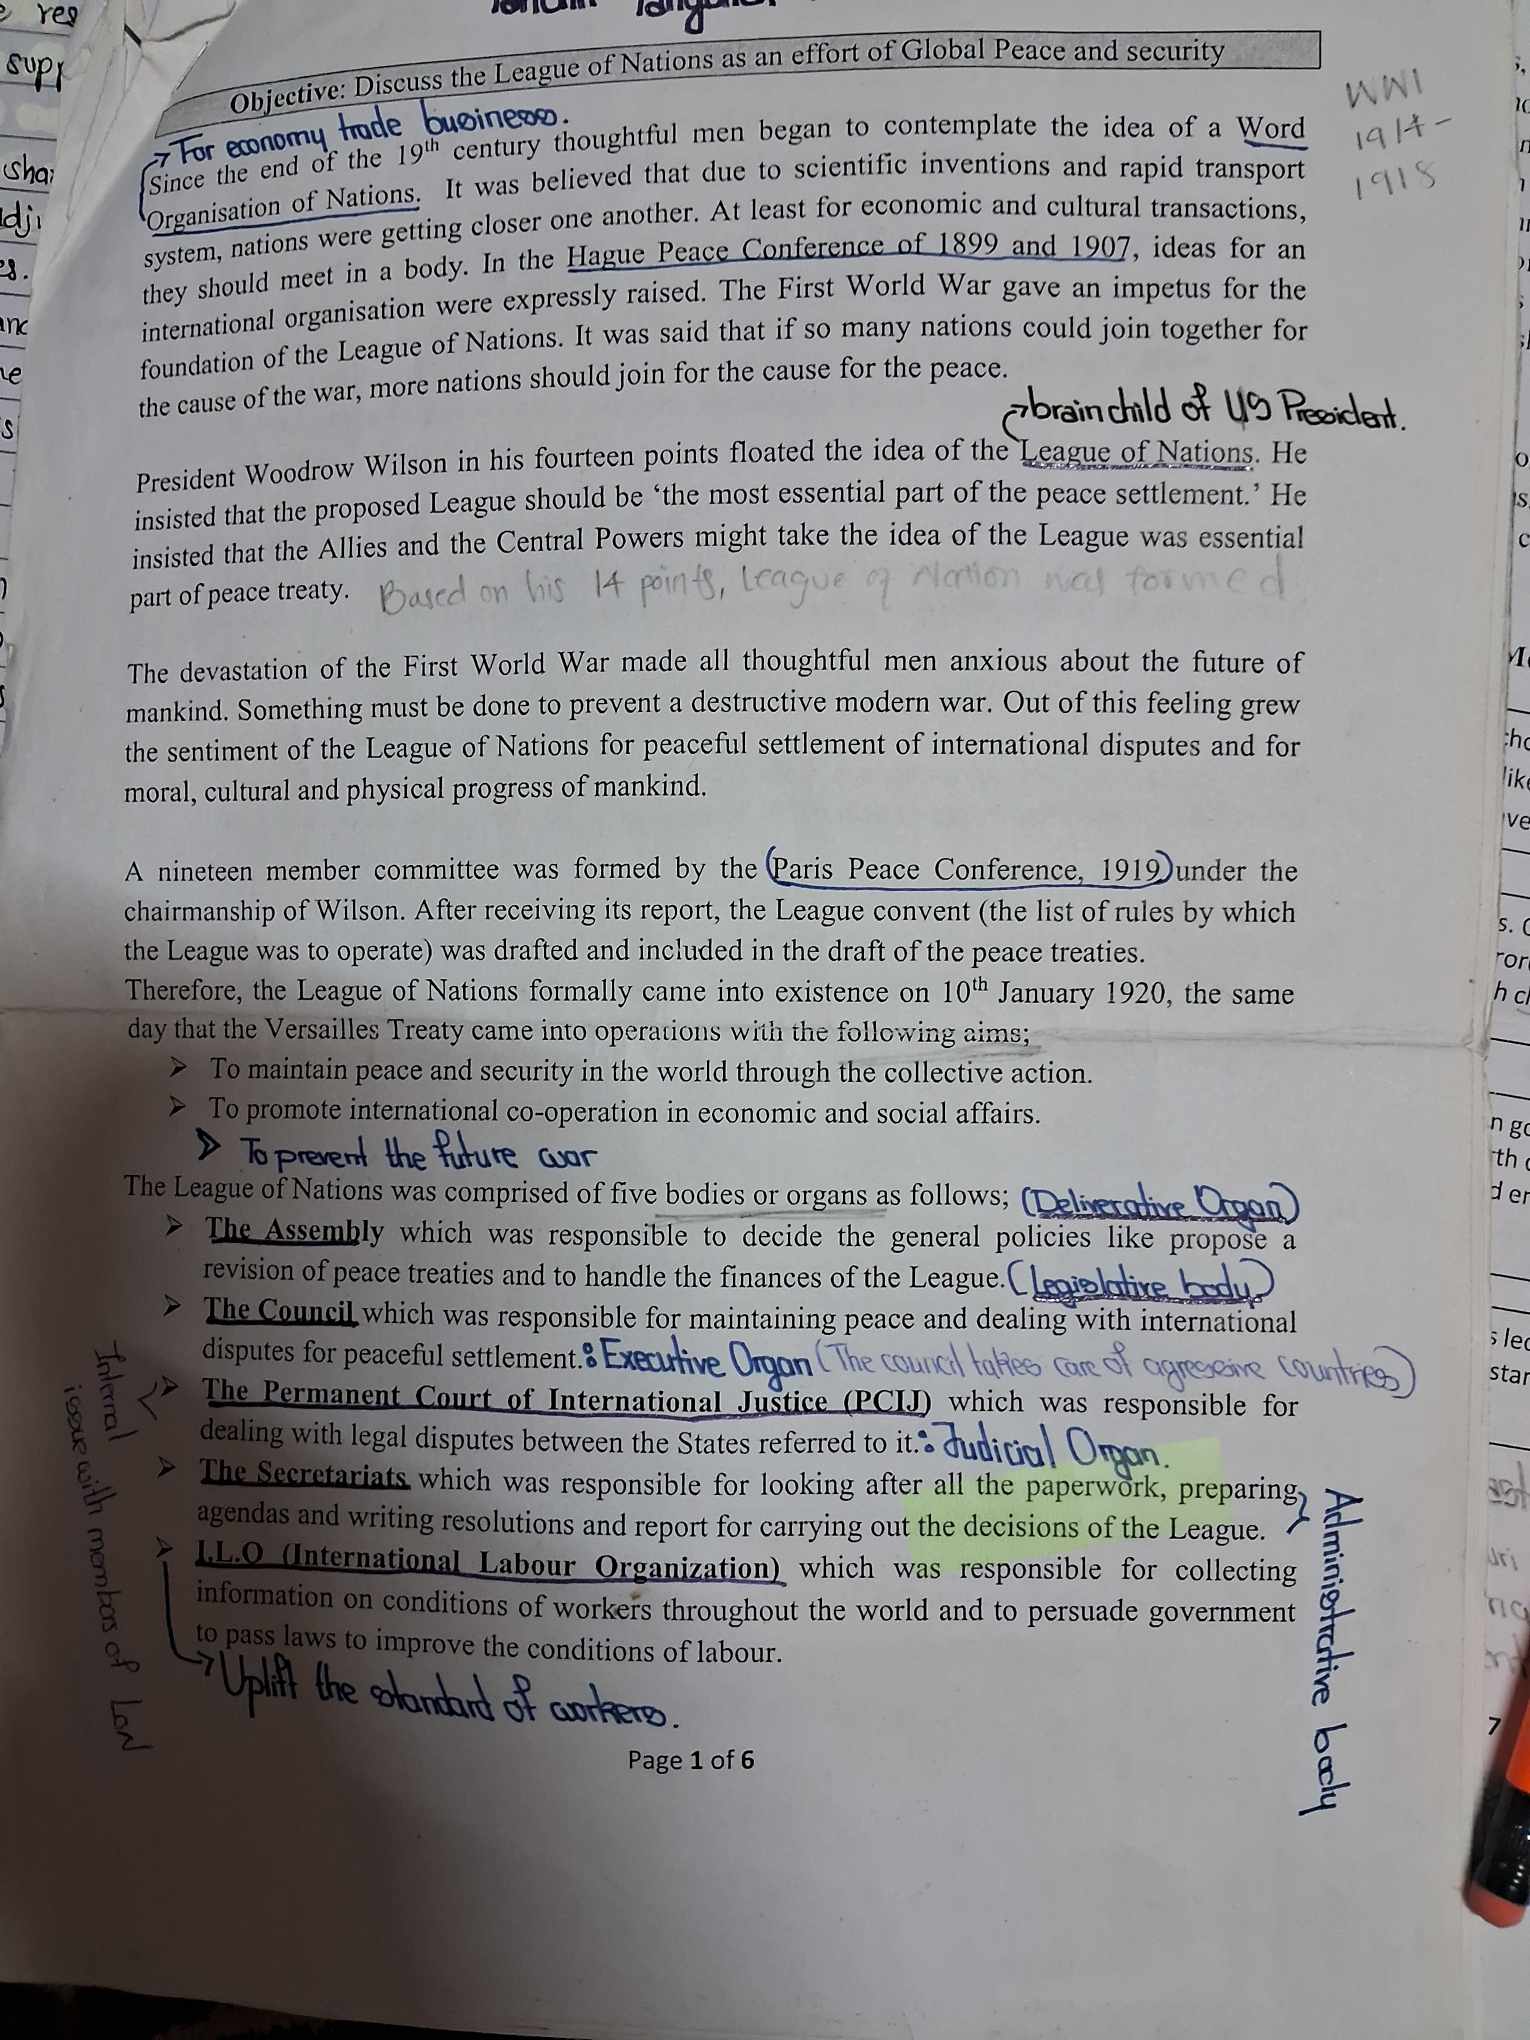 Objective: Discuss the League of Nations as an effort of Global Peace and security
WW1
1914-
1918
→ For economy trade business.
Since the end of the 19th century thoughtful men began to contemplate the idea of a Word
Organisation of Nations. It was believed that due to scientific inventions and rapid transport
system, nations were getting closer one another. At least for economic and cultural transactions,
they should meet in a body. In the Hague Peace Conference of 1899 and 1907, ideas for an
international organisation were expressly raised. The First World War gave an impetus for the
foundation of the League of Nations. It was said that if so many nations could join together for
the cause of the war, more nations should join for the cause for the peace.
→ brainchild of US President.
President Woodrow Wilson in his fourteen points floated the idea of the League of Nations. He
insisted that the proposed League should be ‘the most essential part of the peace settlement.’ He
insisted that the Allies and the Central Powers might take the idea of the League was essential
part of peace treaty. Based on his 14 points, League of Nation was formed
The devastation of the First World War made all thoughtful men anxious about the future of
mankind. Something must be done to prevent a destructive modern war. Out of this feeling grew
the sentiment of the League of Nations for peaceful settlement of international disputes and for
moral, cultural and physical progress of mankind.
A nineteen member committee was formed by the (Paris Peace Conference, 1919) under the
chairmanship of Wilson. After receiving its report, the League convent (the list of rules by which
the League was to operate) was drafted and included in the draft of the peace treaties.
Therefore, the League of Nations formally came into existence on 10th January 1920, the same
day that the Versailles Treaty came into operations with the following aims;
➤ To maintain peace and security in the world through the collective action.
➤ To promote international co-operation in economic and social affairs.
➤ To prevent the future war
The League of Nations was comprised of five bodies or organs as follows; (Deliverative Organ)
➤ The Assembly which was responsible to decide the general policies like propose a
revision of peace treaties and to handle the finances of the League. (Legislative body)
➤ The Council which was responsible for maintaining peace and dealing with international
disputes for peaceful settlement.: Executive Organ (The council takes care of agressive countries)
➤ The Permanent Court of International Justice (PCIJ) which was responsible for
dealing with legal disputes between the States referred to it.: Judicial Organ.
➤ The Secretariats which was responsible for looking after all the paperwork, preparing
agendas and writing resolutions and report for carrying out the decisions of the League.
➤ I.L.O (International Labour Organization) which was responsible for collecting
information on conditions of workers throughout the world and to persuade government
to pass laws to improve the conditions of labour.
→ Uplift the standard of workers.
Internal
issue with members of LoN
Administrative body
Page 1 of 6